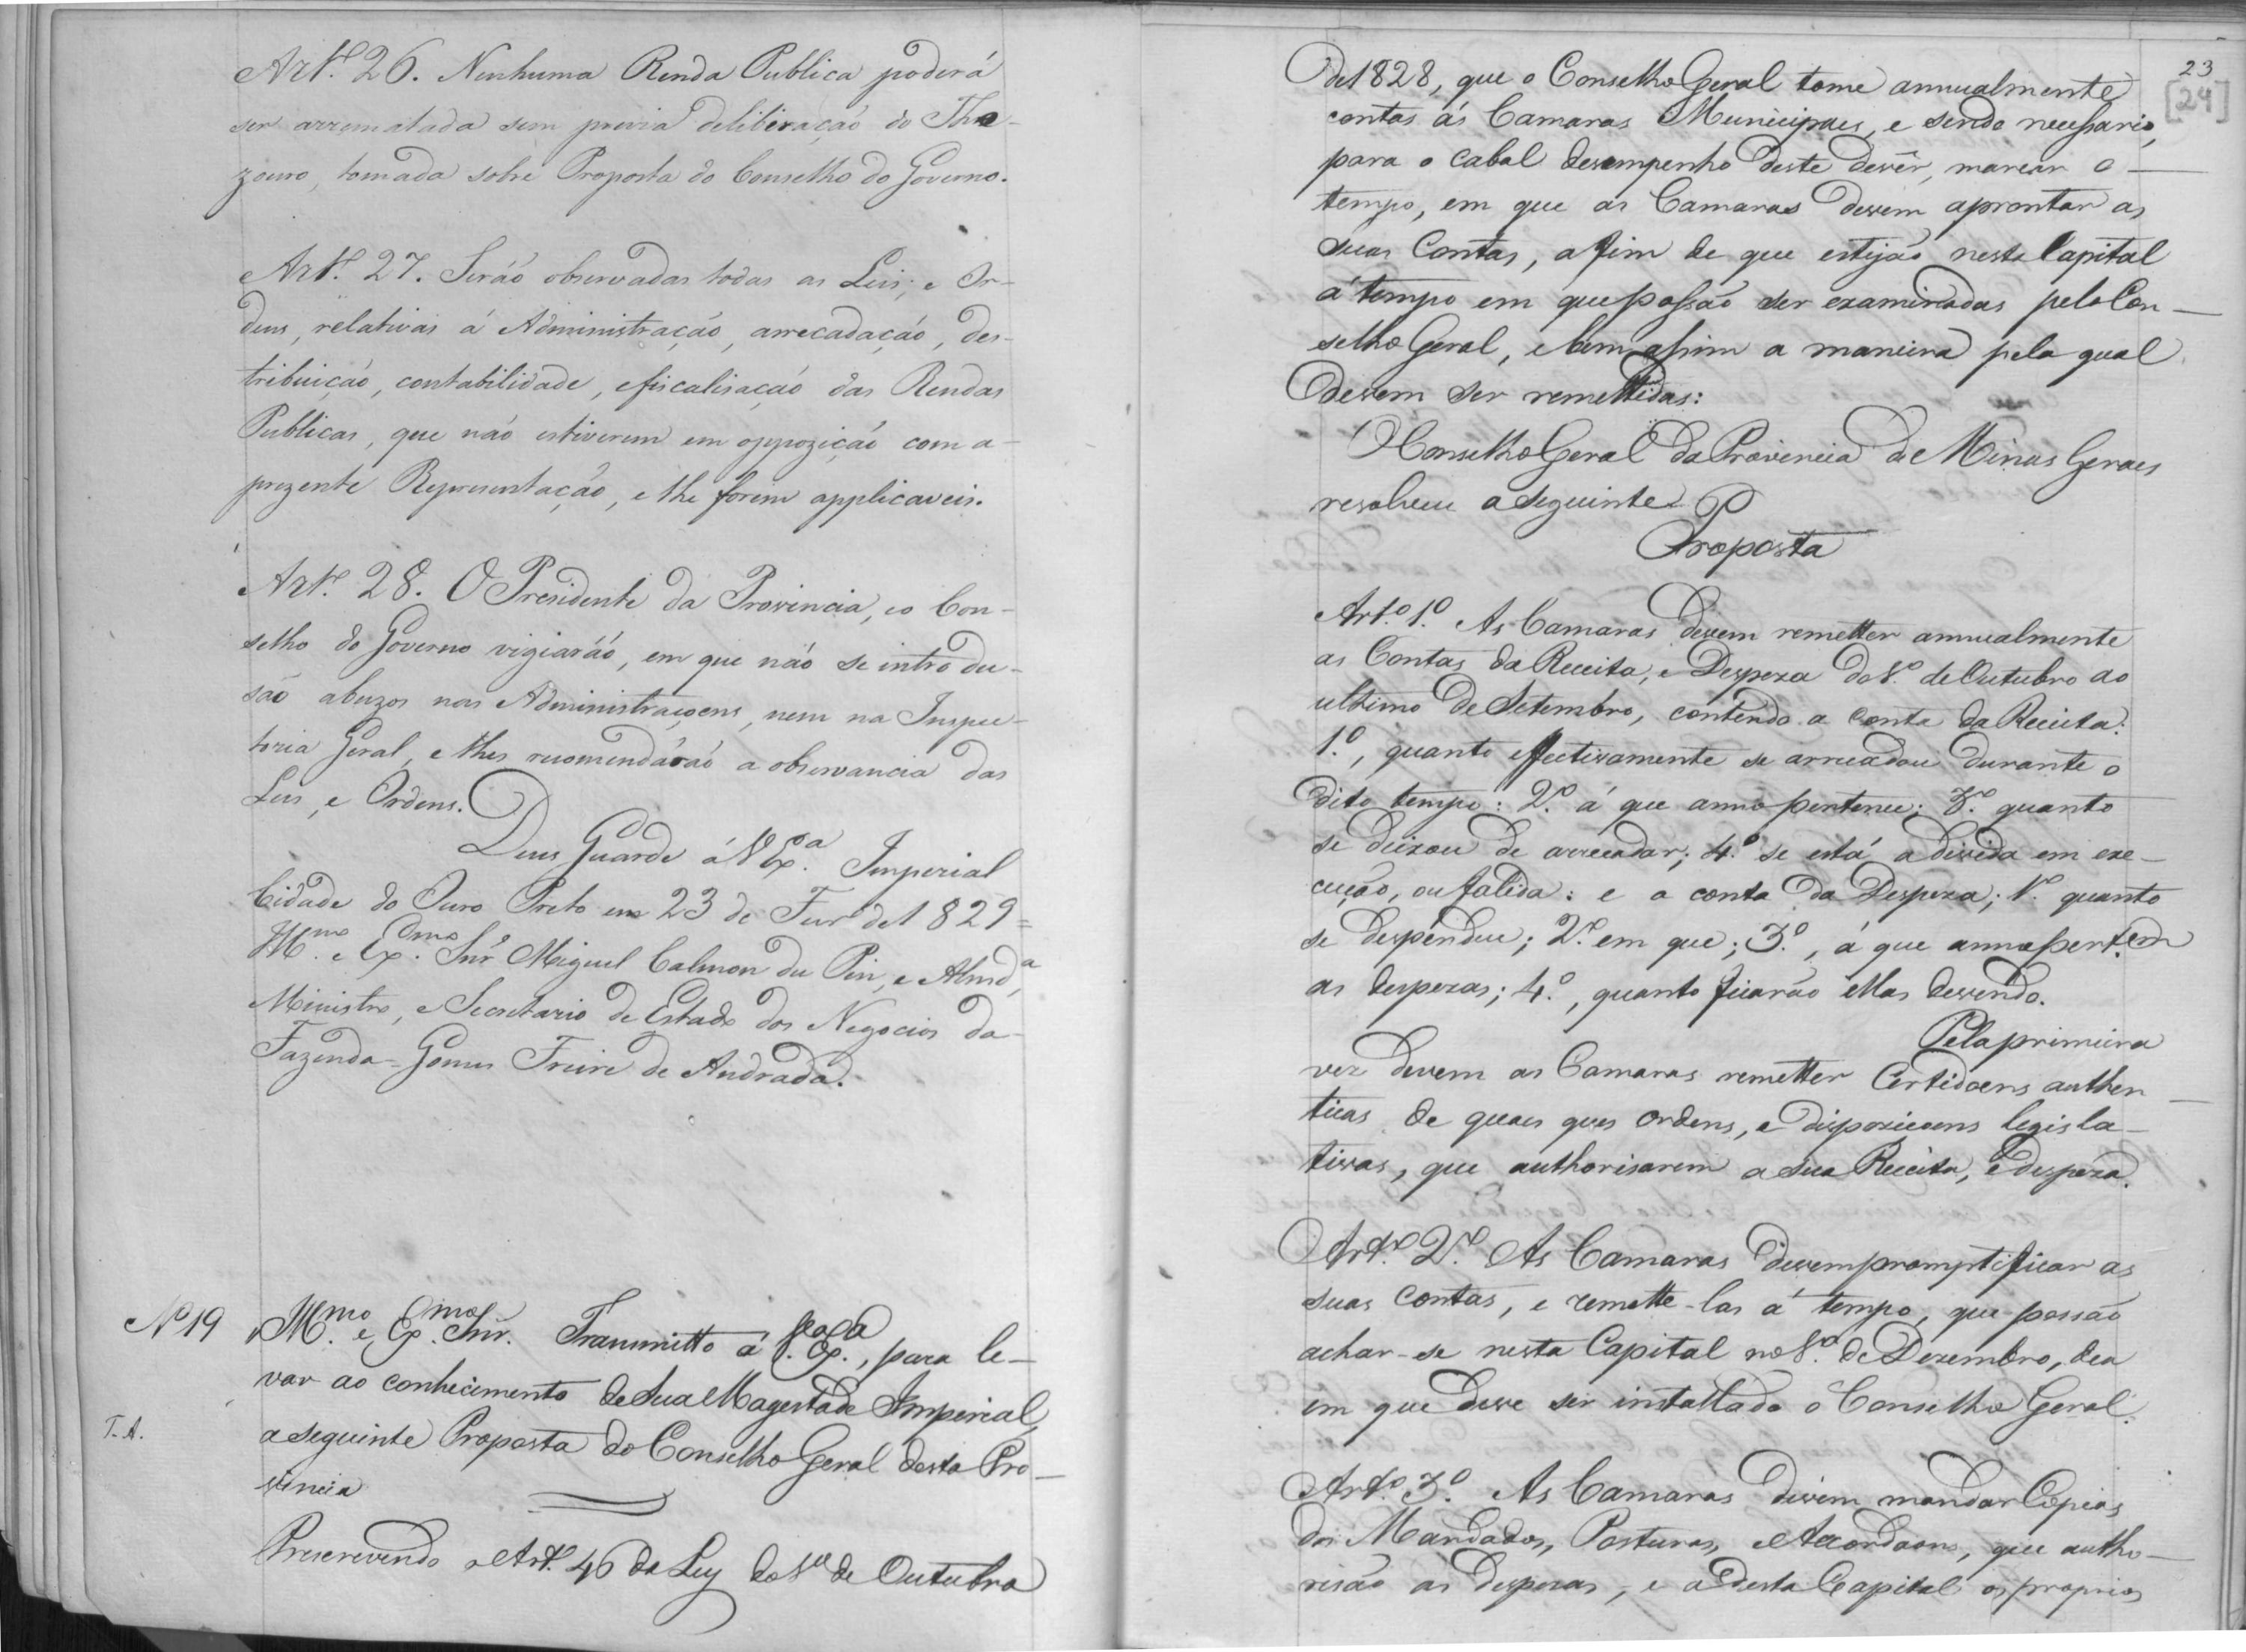 Art.º 26. Nenhuma Renda Publica poderá
ser arrematada sem previa deliberação do The-
zouro, tomada sobre Proposta do Conselho do Governo.
Art.º 27. Seráõ observadas todas as Leis, e Or-
dens, relativas á Administração, arrecadação, des-
tribuição, contabilidade, e fiscalisação das Rendas
Publicas, que não estiverem em oppozição com a
prezente Representação, e lhe forem applicaveis.
Art.º 28. O Presidente da Provincia, e o Con-
selho do Governo vigiaráõ, em que não se introdu-
são abuzos nas Administraçoens, nem na Inspec-
toria Geral, e lhes recomendaráõ a observancia das
Leis, e Ordens.
Deus Guarde á V. Ex.ª Imperial
Cidade do Ouro Preto em 23 de Fevr de 1829=
Ill.mo e Ex.mo Snr Miguel Calmon du Pin, e Almd.ª,
Ministro, e Secretario de Estado dos Negocios da
Fazenda - Gomes Freire de Andrada.
Nº 19 Ill.mo e Ex.mo Snr. Transmitto á V. Ex.ª, para le-
var ao conhecimento de Sua Magestade Imperial,
T. A. a seguinte Proposta do Conselho Geral desta Pro-
vincia
Prescrevendo o Art.º 46 da Ley do 1.º de Outubro
23
[24]
de 1828, que o Conselho Geral tome annualmente
contas ás Camaras Municipaes, e sendo necessario,
para o cabal desempenho deste devêr, marcar o
tempo, em que as Camaras devem aprontar as
suas Contas, a fim de que estejão nesta Capital
á tempo em que possão ser examinadas pelo Con-
selho Geral, e bem assim a maneira pela qual
devem ser remettidas:
O Conselho Geral da Provincia de Minas Geraes
resolveu a seguinte
Proposta
Art.º 1.º As Camaras devem remetter annualmente
as Contas da Receita, e Despeza do 1.º de Outubro ao
ultimo de Setembro, contendo a conta da Receita:
1.º, quanto effectivamente se arrecadou durante o
dito tempo: 2.º á que anno pertence: 3.º quanto
se deixou de arrecadar; 4.º se está a divida em exe-
cução, ou falida: e a conta da Despeza; 1.º quanto
se despendeu; 2.º em que; 3.º, á que anno pert.em
as despezas; 4.º, quanto ficarão ellas devendo.
Pela primeira
vez devem as Camaras remetter Certidoens authen-
ticas de quaes quer ordens, e disposicoens legisla-
tivas, que authorisarem a sua Receita, e despeza.
Art.º 2.º As Camaras devem promptificar as
suas contas, e remette-las á tempo, que possão
achar-se nesta Capital no 1.º de Dezembro, dea
em que deve ser installado o Conselho Geral.
Art.º 3.º As Camaras devem mandar Copias
dos Mandados, Posturas, e Accordaons, que autho-
risão as despezas, e a desta Capital os proprios